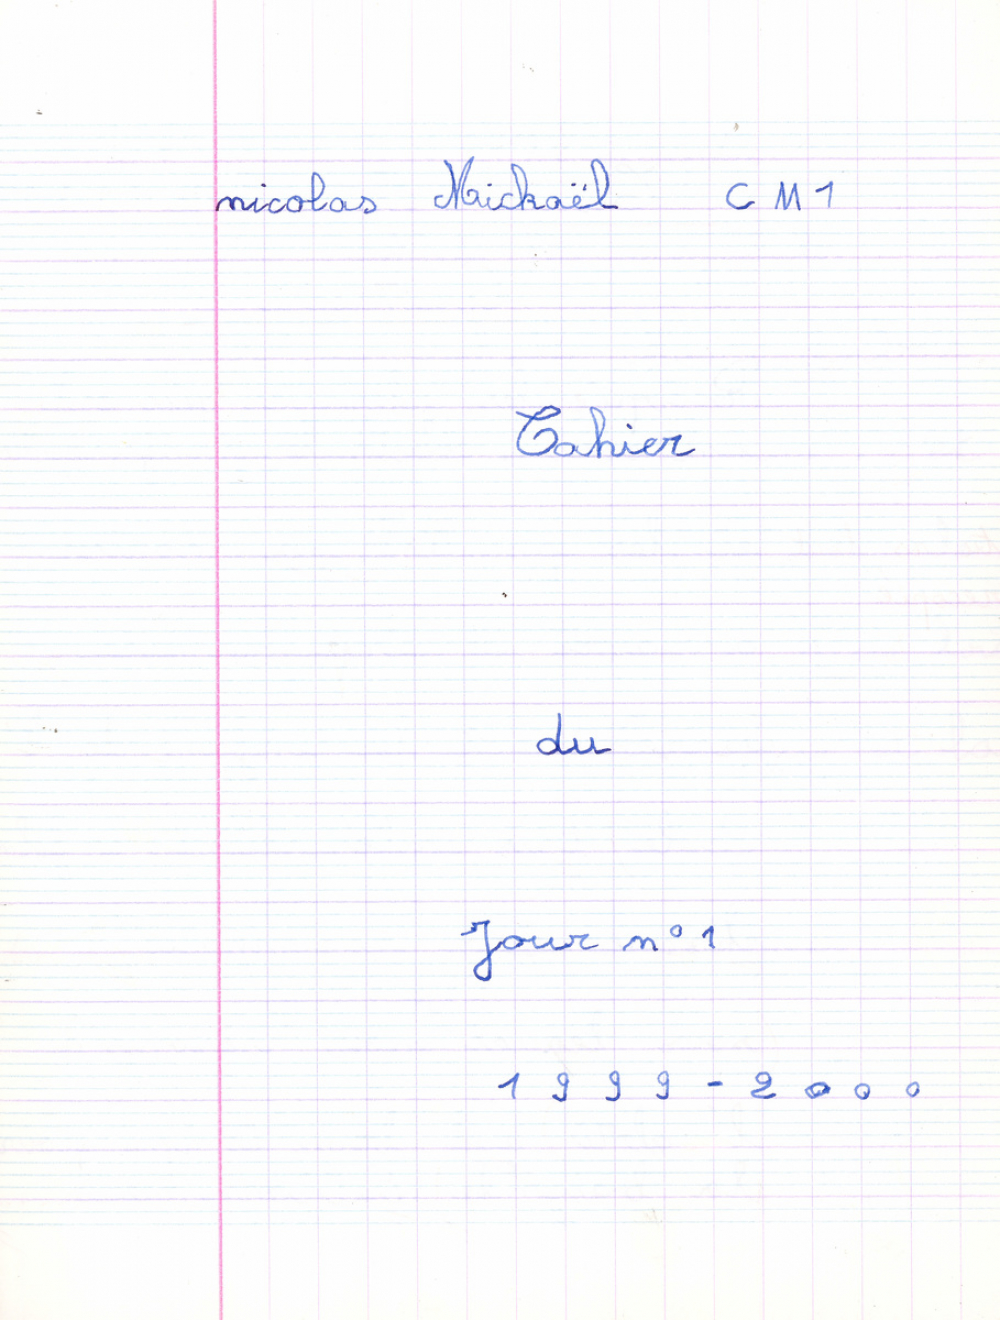 nicolas Mickaël CM1
Cahier
du
Jour n°1
1999-2000